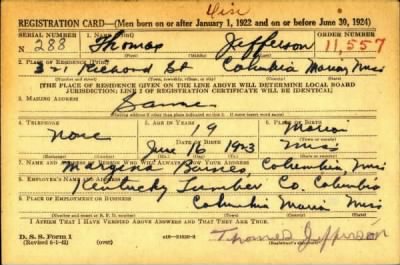 REGISTRATION CARD—(Men born on or after January 1, 1922 and on or before June 30, 1924)
SERIAL NUMBER 1. NAME (Print) ORDER NUMBER
N 288 Thomas Jefferson 11,557
2. PLACE OF RESIDENCE (Print)
321 Richard St Columbia Marion, Miss
[THE PLACE OF RESIDENCE GIVEN ON THE LINE ABOVE WILL DETERMINE LOCAL BOARD
JURISDICTION; LINE 2 OF REGISTRATION CERTIFICATE WILL BE IDENTICAL]
3. MAILING ADDRESS
Same
4. TELEPHONE 5. AGE IN YEARS 6. PLACE OF BIRTH
None 19 Marion
DATE OF BIRTH
16 1923 Miss
7. NAME AND ADDRESS OF PERSON WHO WILL ALWAYS KNOW YOUR ADDRESS
Barnes, Columbia, Miss
8. EMPLOYER'S NAME AND ADDRESS
Kentucky Lumber Co. Columbia
9. PLACE OF EMPLOYMENT OR BUSINESS
Columbia Marion Miss
I AFFIRM THAT I HAVE VERIFIED ABOVE ANSWERS AND THAT THEY ARE TRUE.
D. S. S. Form 1
(Revised 6-1-42)
Thomas Jefferson